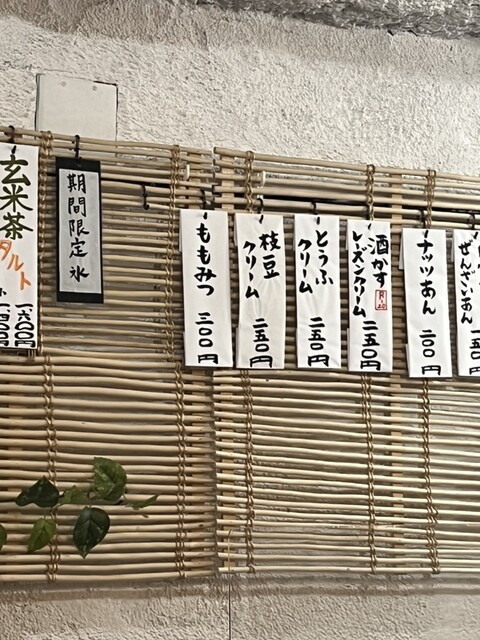 玄米茶
タルト
一、六〇〇円
一、四〇〇円
期間限定氷
ももみつ 三〇〇円
枝豆
クリーム 二五〇円
とうふ
クリーム 二五〇円
酒かす
レーズンクリーム 二五〇円
R-20
ナッツあん 二〇〇円
ぜんざいあん 一五〇円